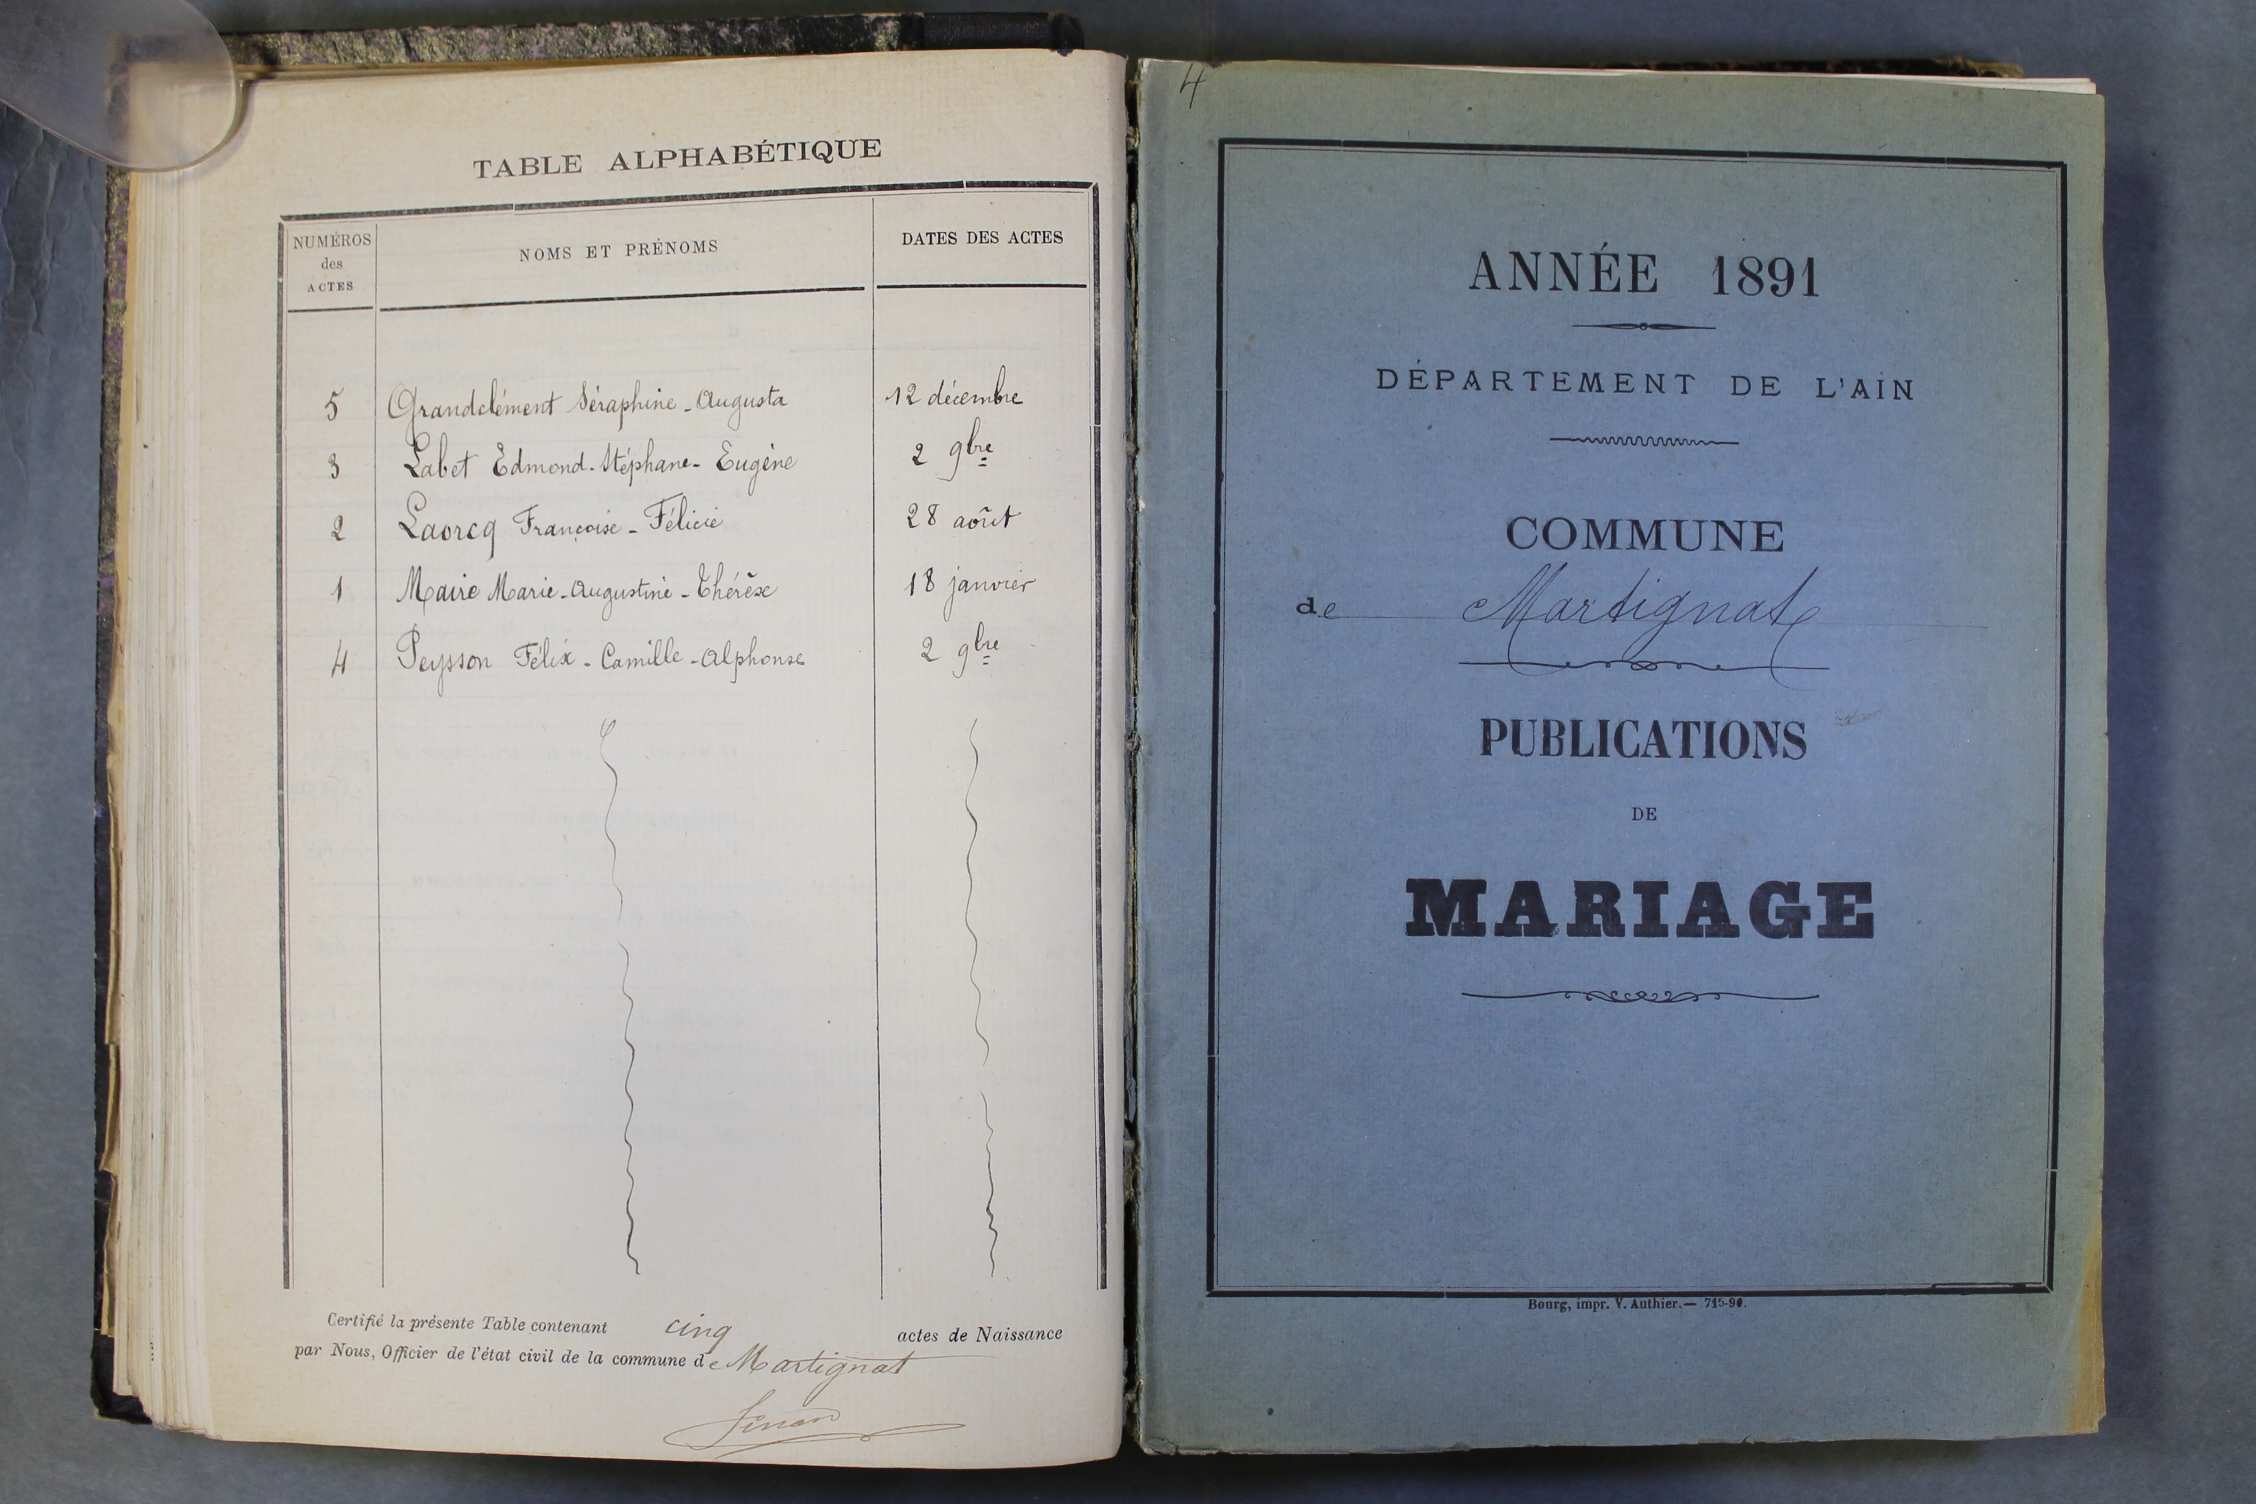 TABLE ALPHABÉTIQUE
NUMÉROS
des
ACTES
NOMS ET PRÉNOMS
DATES DES ACTES
5 Grandclément Séraphine-Augusta 12 décembre
3 Labet Edmond-Stéphane-Eugène 2 9bre
2 Laorcq Françoise-Félicie 28 août
1 Maire Marie-Augustine-Thérèse 18 janvier
4 Peysson Félix-Camille-Alphonse 2 9bre
Certifié la présente Table contenant cinq actes de Naissance
par Nous, Officier de l'état civil de la commune de Martignat
4
ANNÉE 1891
DÉPARTEMENT DE L'AIN
COMMUNE
de Martignat
PUBLICATIONS
DE
MARIAGE
Bourg, impr. V. Authier.— 715-90.